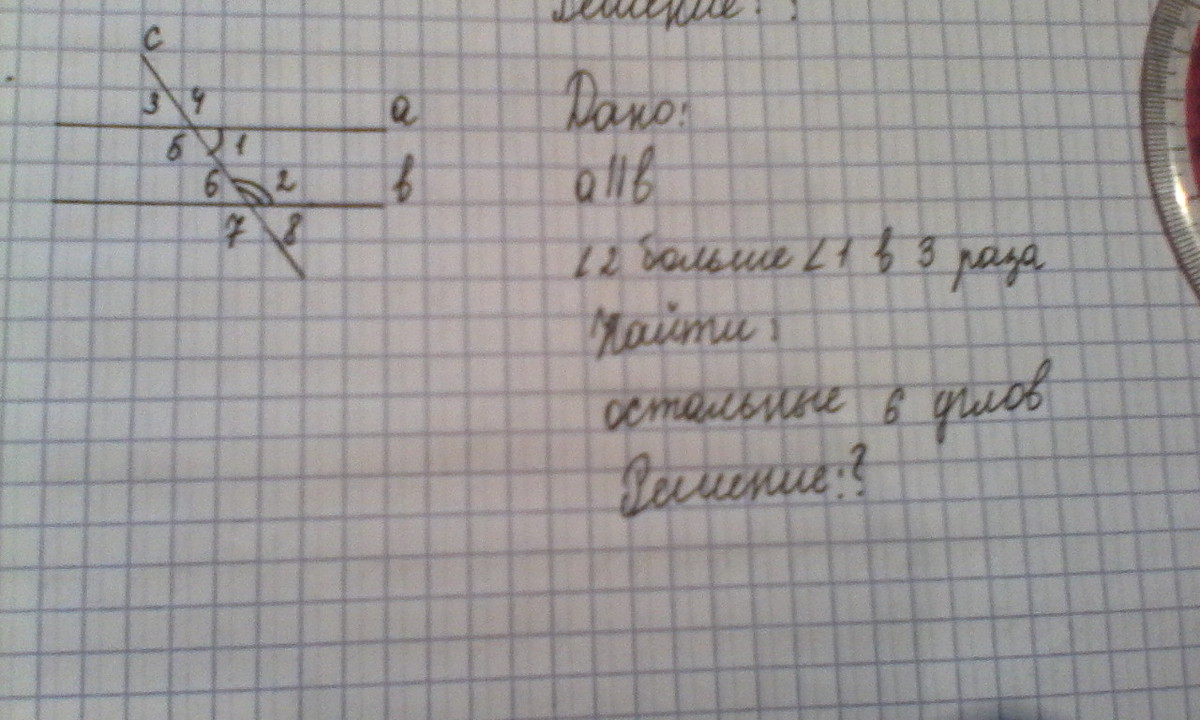 Решение: ?
c
3 4
a
5 1
6 2
в
7 8
Дано:
a||в
∠2 больше ∠1 в 3 раза
Найти:
остальные 6 углов
Решение:?